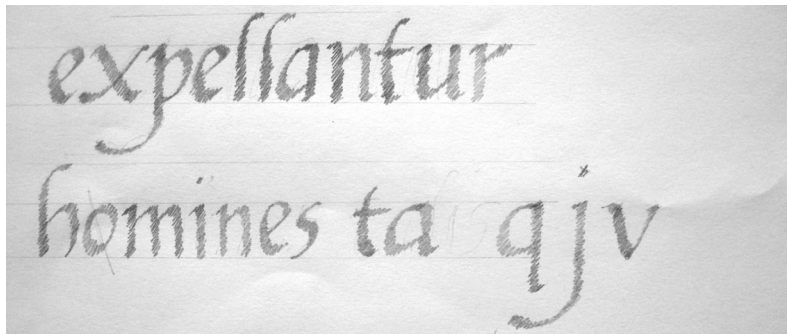 expellantur
homines ta q j v